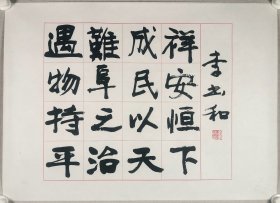 遇難成祥
物阜民安
持之以恒
平治天下
李出和